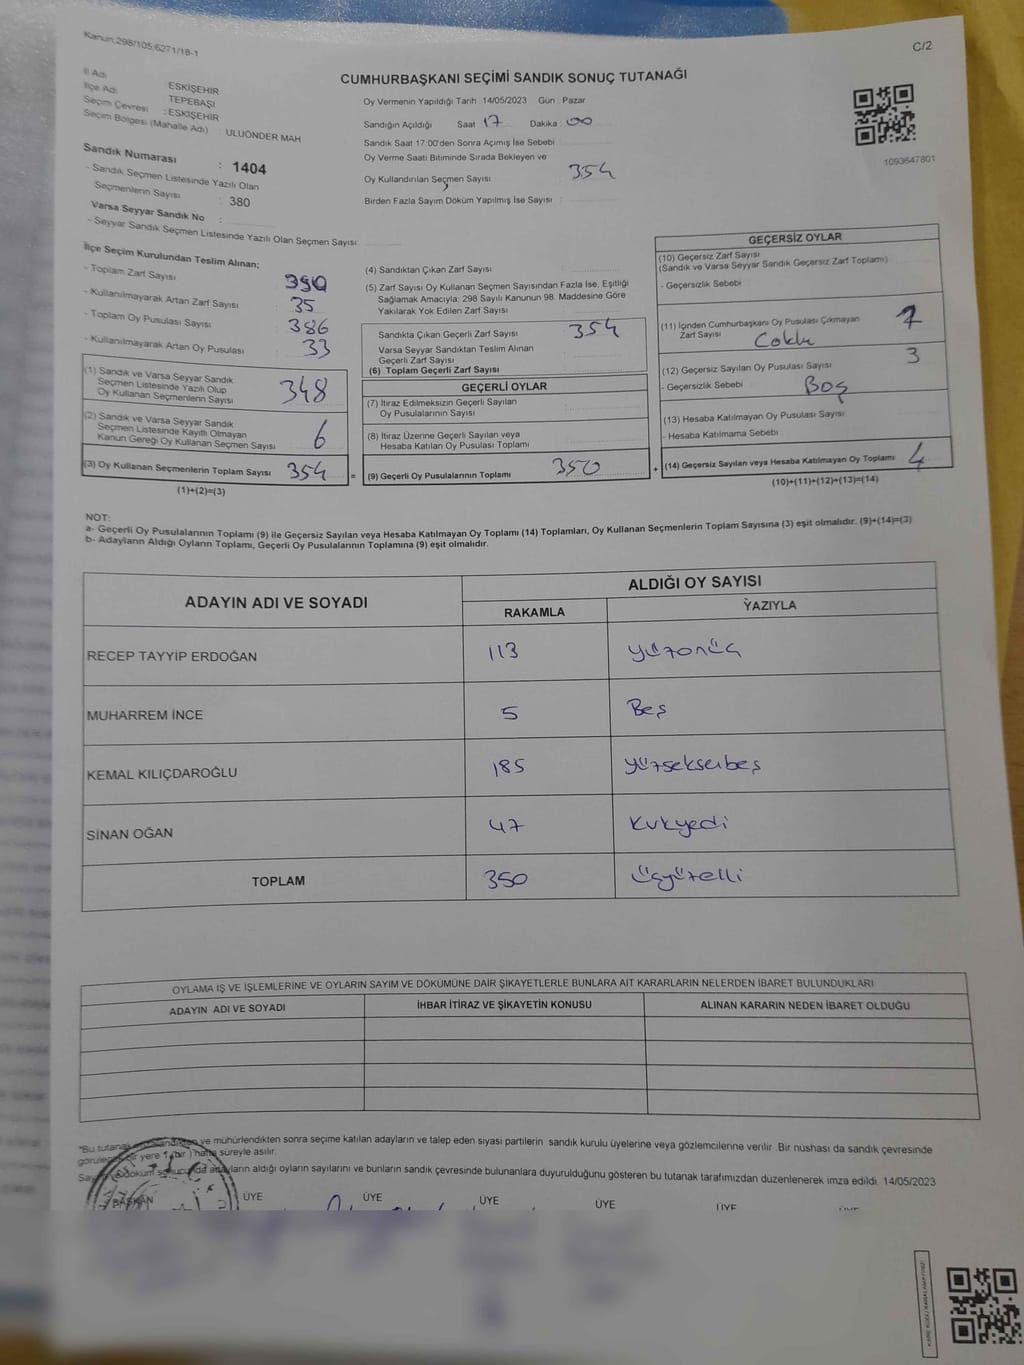 Kanun:298/105;6271/18-1
C/2
CUMHURBAŞKANI SEÇİMİ SANDIK SONUÇ TUTANAĞI
İl Adı ESKİŞEHİR
İlçe Adı TEPEBAŞI
Seçim Çevresi : ESKİŞEHİR
Seçim Bölgesi (Mahalle Adı) : ULUÖNDER MAH
Sandık Numarası : 1404
- Sandık Seçmen Listesinde Yazılı Olan
Seçmenlerin Sayısı : 380
Varsa Seyyar Sandık No :
- Seyyar Sandık Seçmen Listesinde Yazılı Olan Seçmen Sayısı:
Oy Vermenin Yapıldığı Tarih : 14/05/2023 Gün : Pazar
Sandığın Açıldığı Saat 17 Dakika 00
Sandık Saat 17:00'den Sonra Açılmış İse Sebebi
Oy Verme Saati Bitiminde Sırada Bekleyen ve
Oy Kullandırılan Seçmen Sayısı 354
Birden Fazla Sayım Döküm Yapılmış İse Sayısı :
1093647801
İlçe Seçim Kurulundan Teslim Alınan;
- Toplam Zarf Sayısı 390
- Kullanılmayarak Artan Zarf Sayısı 35
- Toplam Oy Pusulası Sayısı 386
- Kullanılmayarak Artan Oy Pusulası 33
(1) Sandık ve Varsa Seyyar Sandık
Seçmen Listesinde Yazılı Olup
Oy Kullanan Seçmenlerin Sayısı 348
(2) Sandık ve Varsa Seyyar Sandık
Seçmen Listesinde Kayıtlı Olmayan
Kanun Gereği Oy Kullanan Seçmen Sayısı 6
(3) Oy Kullanan Seçmenlerin Toplam Sayısı 354 =
(1)+(2)=(3)
(4) Sandıktan Çıkan Zarf Sayısı
(5) Zarf Sayısı Oy Kullanan Seçmen Sayısından Fazla İse, Eşitliği
Sağlamak Amacıyla; 298 Sayılı Kanunun 98. Maddesine Göre
Yakılarak Yok Edilen Zarf Sayısı
Sandıkta Çıkan Geçerli Zarf Sayısı 354
Varsa Seyyar Sandıktan Teslim Alınan
Geçerli Zarf Sayısı
(6) Toplam Geçerli Zarf Sayısı
GEÇERLİ OYLAR
(7) İtiraz Edilmeksizin Geçerli Sayılan
Oy Pusulalarının Sayısı
(8) İtiraz Üzerine Geçerli Sayılan veya
Hesaba Katılan Oy Pusulası Toplamı
(9) Geçerli Oy Pusulalarının Toplamı 350 +
GEÇERSİZ OYLAR
(10) Geçersiz Zarf Sayısı
(Sandık ve Varsa Seyyar Sandık Geçersiz Zarf Toplamı)
- Geçersizlik Sebebi
(11) İçinden Cumhurbaşkanı Oy Pusulası Çıkmayan
Zarf Sayısı
(12) Geçersiz Sayılan Oy Pusulası Sayısı 3
- Geçersizlik Sebebi Boş
(13) Hesaba Katılmayan Oy Pusulası Sayısı
- Hesaba Katılmama Sebebi
(14) Geçersiz Sayılan veya Hesaba Katılmayan Oy Toplamı 4
(10)+(11)+(12)+(13)=(14)
NOT:
a- Geçerli Oy Pusulalarının Toplamı (9) ile Geçersiz Sayılan veya Hesaba Katılmayan Oy Toplamı (14) Toplamları, Oy Kullanan Seçmenlerin Toplam Sayısına (3) eşit olmalıdır. (9)+(14)=(3)
b- Adayların Aldığı Oyların Toplamı, Geçerli Oy Pusulalarının Toplamına (9) eşit olmalıdır.
ADAYIN ADI VE SOYADI
ALDIĞI OY SAYISI
RAKAMLA YAZIYLA
RECEP TAYYİP ERDOĞAN 113 Yüzonüç
MUHARREM İNCE 5 Beş
KEMAL KILIÇDAROĞLU 185 Yüzseksenbeş
SİNAN OĞAN 47 Kırkyedi
TOPLAM 350 Üçyüzelli
OYLAMA İŞ VE İŞLEMLERİNE VE OYLARIN SAYIM VE DÖKÜMÜNE DAİR ŞİKAYETLERLE BUNLARA AİT KARARLARIN NELERDEN İBARET BULUNDUKLARI
ADAYIN ADI VE SOYADI İHBAR İTİRAZ VE ŞİKAYETİN KONUSU ALINAN KARARIN NEDEN İBARET OLDUĞU
"Bu tutanak ve mühürlendikten sonra seçime katılan adayların ve talep eden siyasi partilerin sandık kurulu üyelerine veya gözlemcilerine verilir. Bir nüshası da sandık çevresinde
bir yere 1 (bir) hafta süreyle asılır.
adayların aldığı oyların sayılarını ve bunların sandık çevresinde bulunanlara duyurulduğunu gösteren bu tutanak tarafımızdan düzenlenerek imza edildi. 14/05/2023
BAŞKAN ÜYE ÜYE ÜYE ÜYE ÜYE